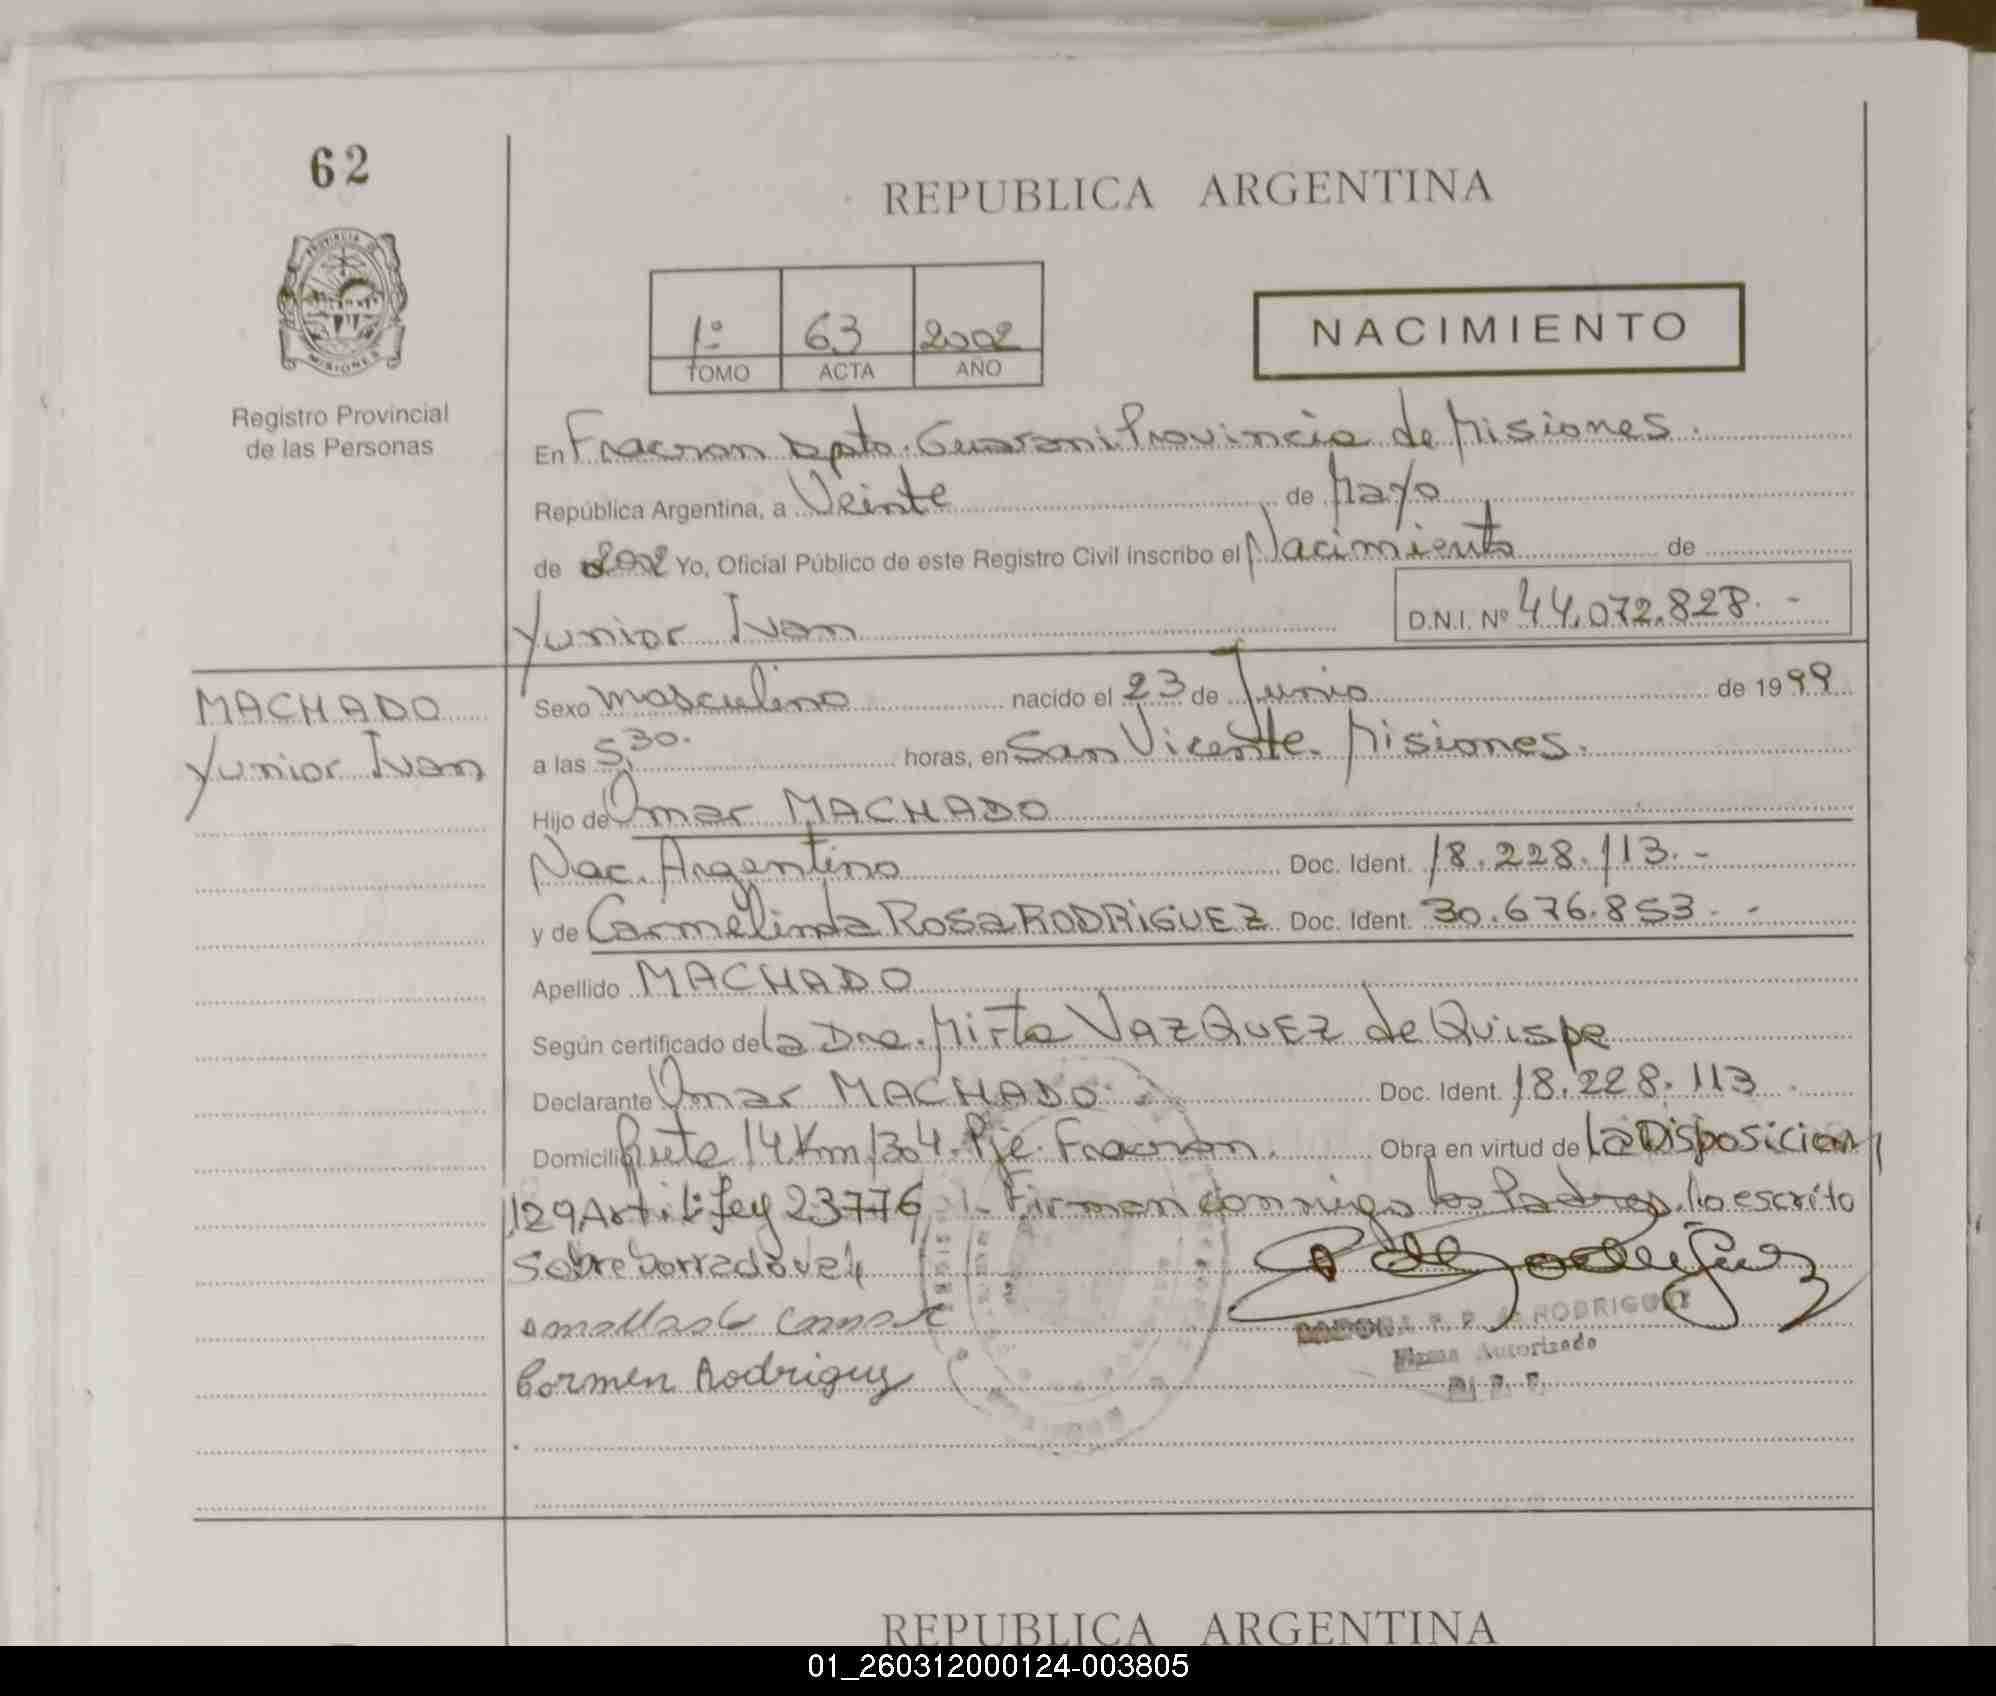 62
REPUBLICA ARGENTINA
PROVINCIA DE
MISIONES
Registro Provincial
de las Personas
1º 63 2002
TOMO ACTA AÑO
NACIMIENTO
En Fracran Dpto. Guarani Provincia de Misiones.
República Argentina, a Veinte de Mayo
de 2002 Yo, Oficial Público de este Registro Civil inscribo el Nacimiento de
Yunior Ivan D.N.I. Nº 44.072.828.-
MACHADO
Yunior Ivan
Sexo masculino nacido el 23 de Junio de 1999
a las 5,30. horas, en San Vicente. Misiones.
Hijo de Omar MACHADO
Nac. Argentino Doc. Ident. 18.228.113.-
y de Carmelinda Rosa RODRIGUEZ Doc. Ident. 30.676.853.-
Apellido MACHADO
Según certificado de la Dra. Mirta VAZQUEZ de Quispe
Declarante Omar MACHADO. Doc. Ident. 18.228.113
Domicilio Ruta 14 Km 1304. Pje. Fracran. Obra en virtud de la Disposicion
129 Art. 1: Ley 23776. Firman conmigo los Padres. lo escrito
sobre borrado vale
Carmen Rodriguez
RODRIGUEZ
Firma Autorizada
REPUBLICA ARGENTINA
01_260312000124-003805